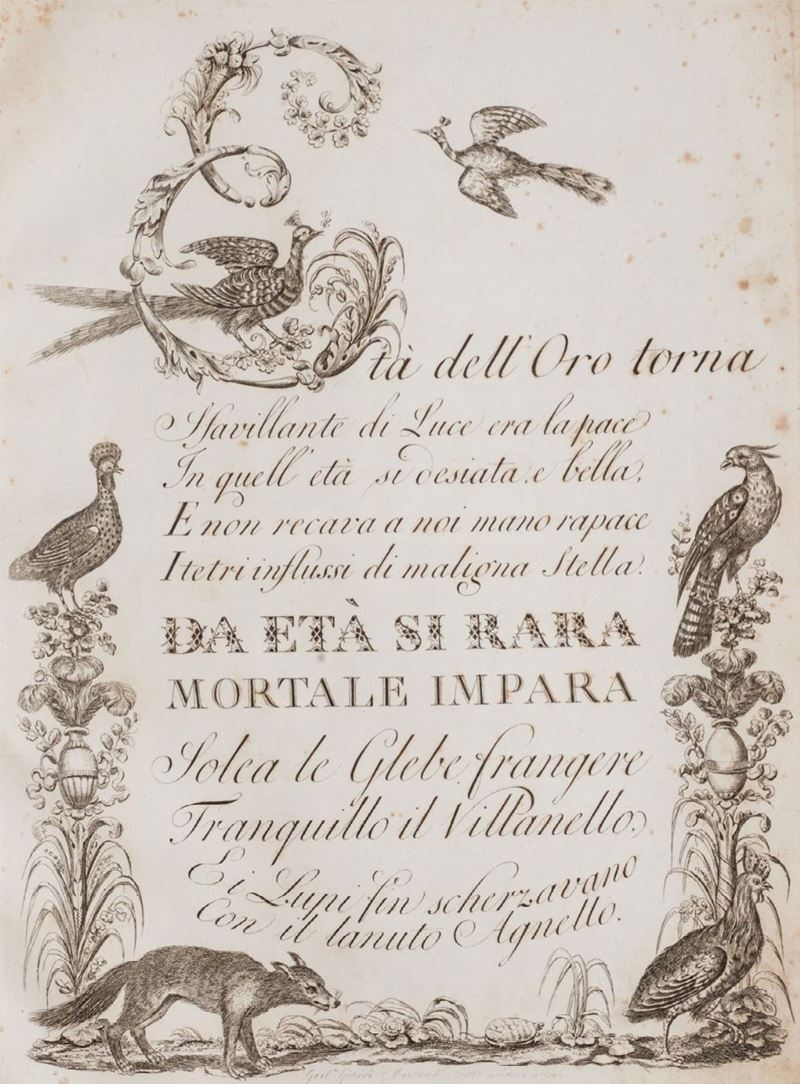 Età dell'Oro torna
Sfavillante di Luce era la pace
In quell' età si desiata, e bella,
E non recava a noi mano rapace
I tetri influssi di maligna Stella.
DA ETÀ SI RARA
MORTALE IMPARA
Solea le Glebe frangere
Tranquillo il Villanello,
E i Lupi fin scherzavano
Con il lanuto Agnello.